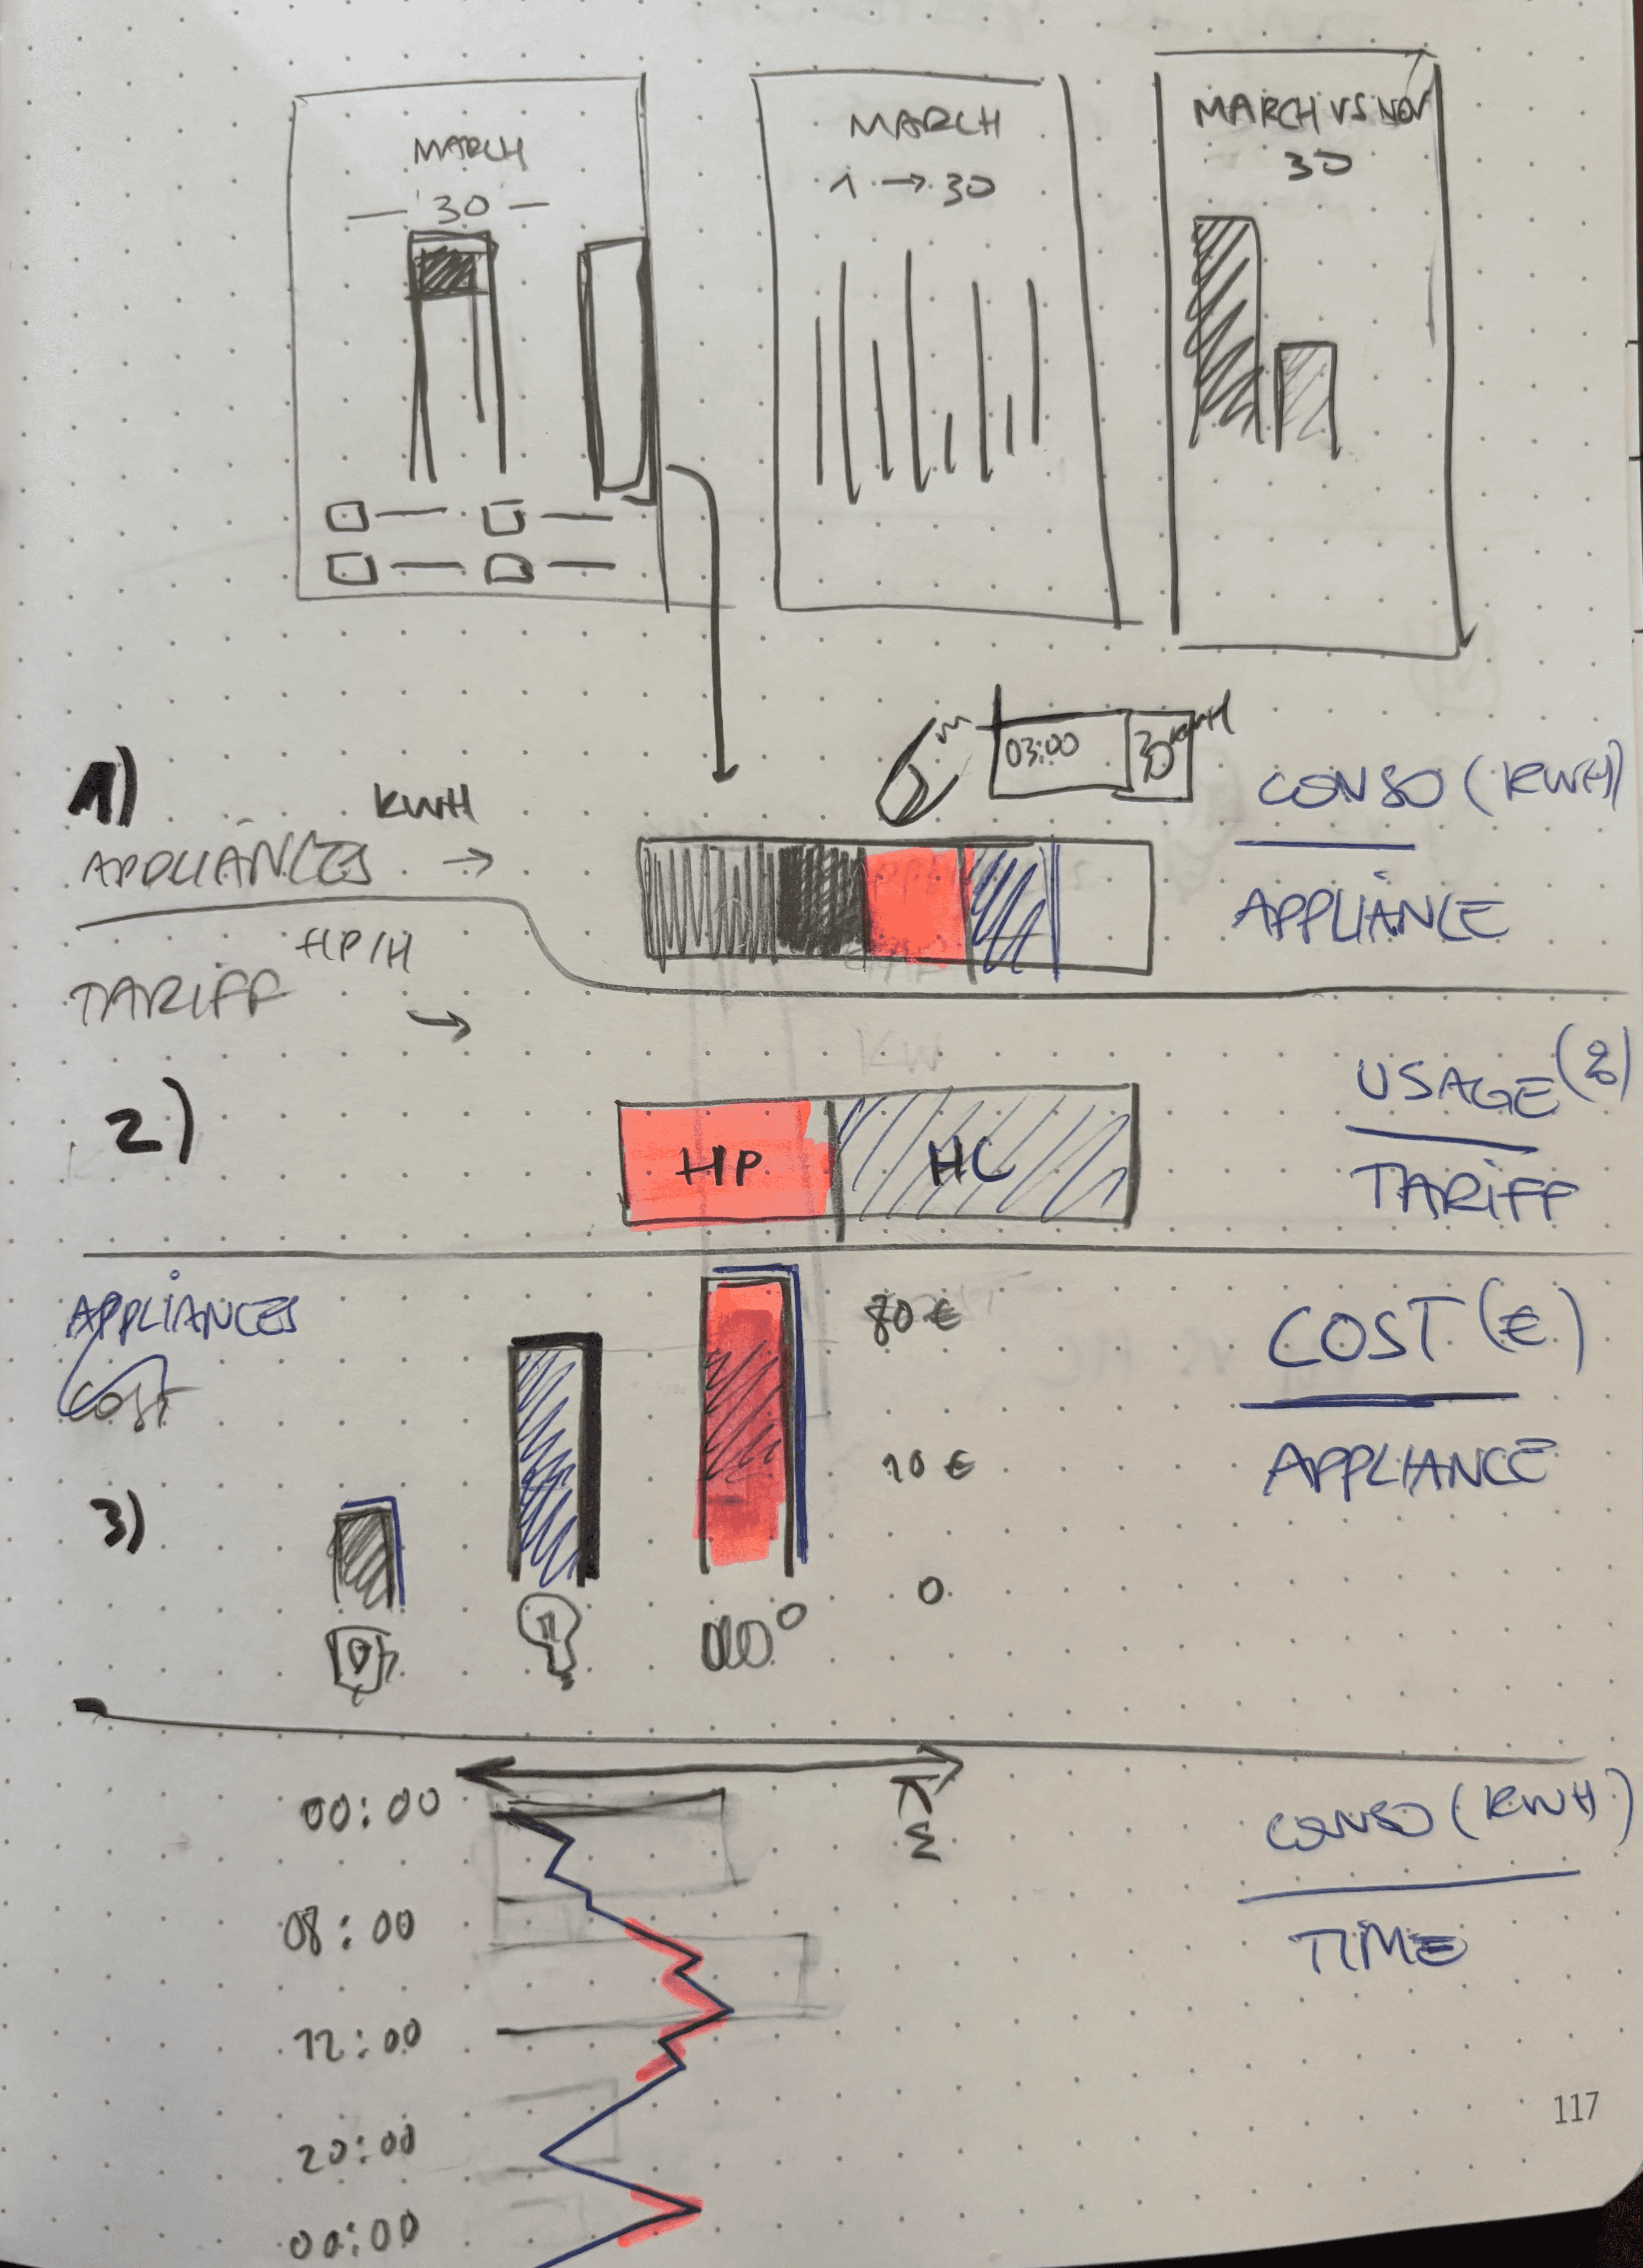 MARCH
30
MARCH
1 → 30
MARCH VS NOV
30
1)
KWH
APPLIANCES →
03:00
30 KWH
CONSO (KWH)
APPLIANCE
HP/H
TARIFF →
2)
HP
HC
USAGE (%)
TARIFF
APPLIANCES
COST
3)
80 €
10 €
0
COST (€)
APPLIANCE
00:00
08:00
12:00
20:00
00:00
CONSO (KWH)
TIME
117